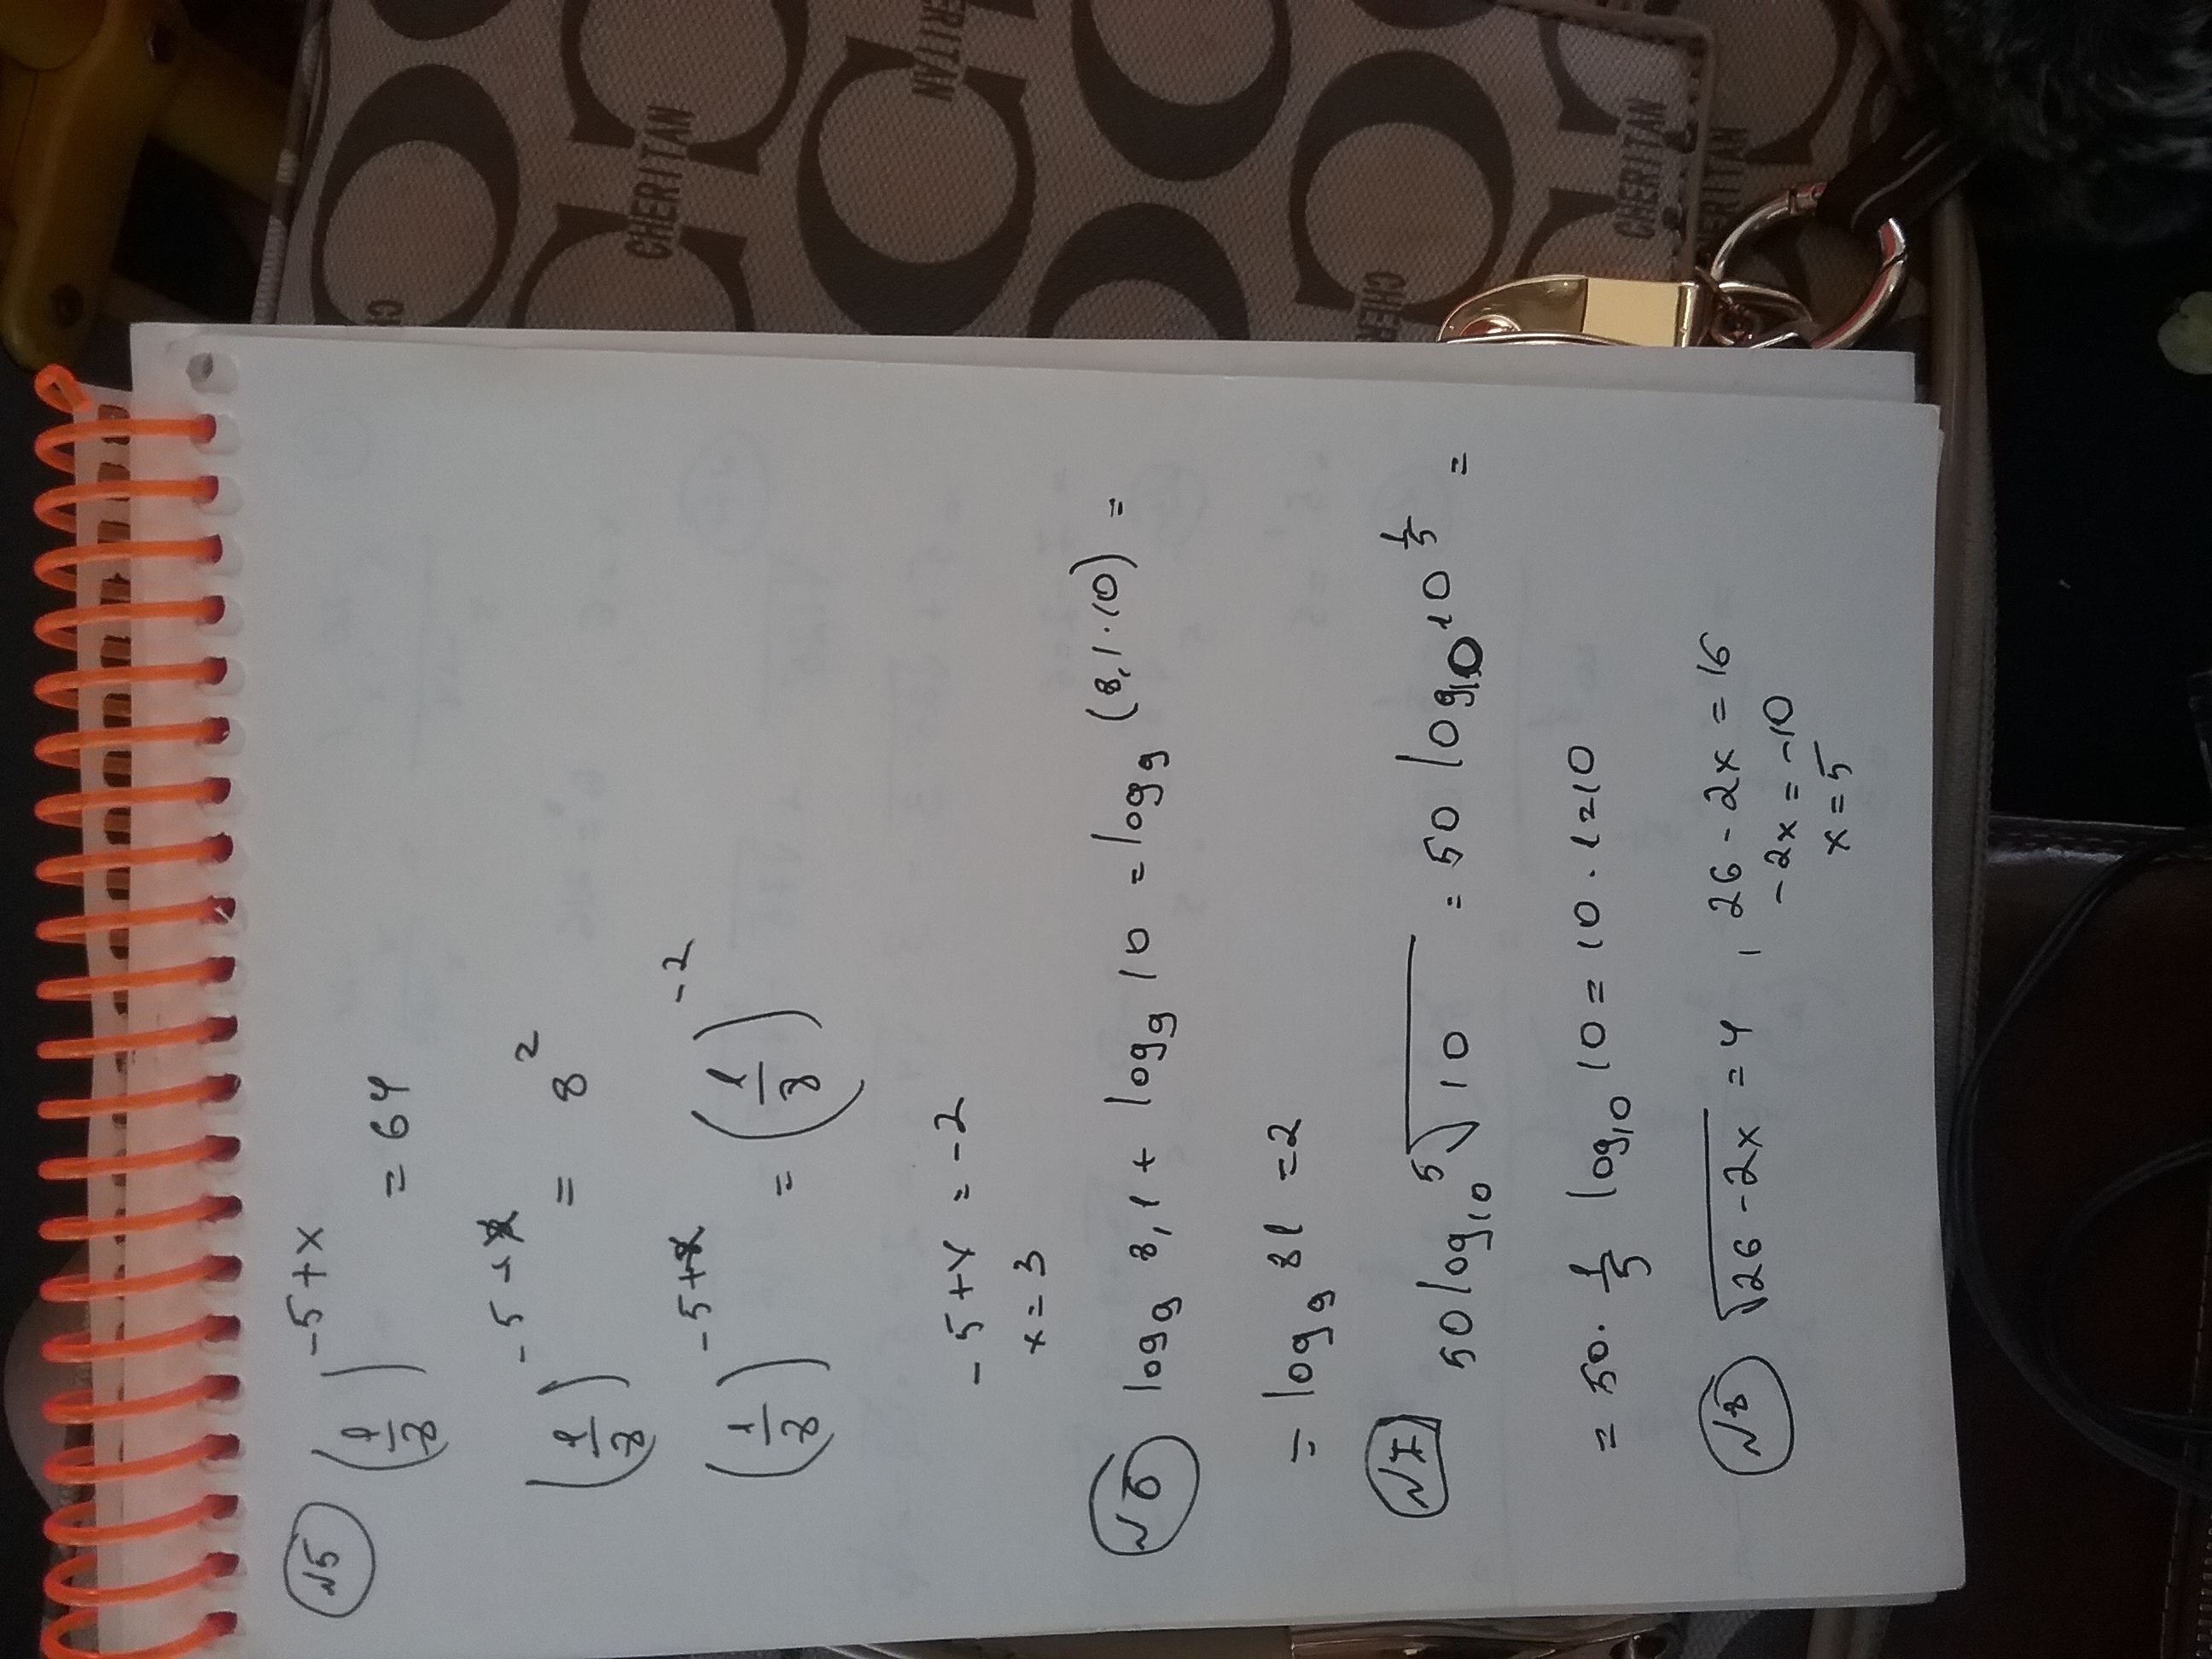 №5 (1/8)^(-5+x) = 64
(1/8)^(-5+x) = 8^2
(1/8)^(-5+x) = (1/8)^(-2)
-5+x = -2
x = 3
№6 log₉ 8,1 + log₉ 10 = log₉ (8,1·10) =
= log₉ 81 = 2
№7 50 log₁₀ ⁵√10 = 50 log₁₀ 10^(1/5) =
= 50 · 1/5 log₁₀ 10 = 10 · 1 = 10
№8 √(26-2x) = 4, 26-2x = 16
-2x = -10
x = 5
CHERITAN
CHERITAN
CHERITAN
CHERITAN